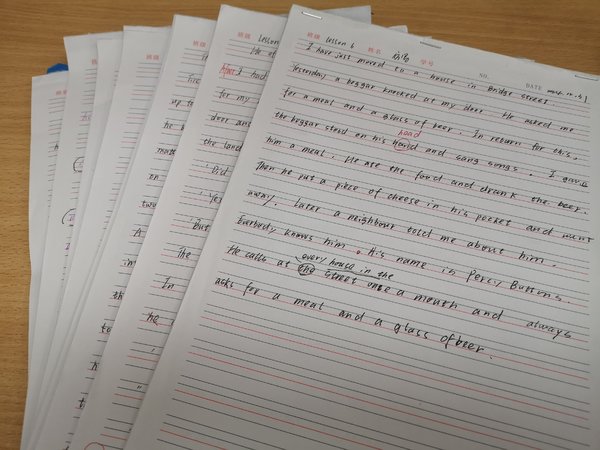 班级 Lesson 6 姓名 学号
NO. DATE
I have just moved to a house in Bridge street.
Yesterday a beggar knocked at my door. He asked me
for a meal and a glass of beer. In return for this,
head
the beggar stood on his and sang songs. I gave
him a meal. He ate the food and drank the beer.
Then he put a piece of cheese in his pocket and went
away. Later a neighbour told me about him.
Everybody knows him. His name is Percy Buttons.
every house in the
He calls at the street once a month and always
asks for a meal and a glass of beer.
班级 Lesson
He
had
for my
door and
the land
'Did
'Yes
'But
The
In
he
班级
up to
he
made
on
two
A
im
the
te